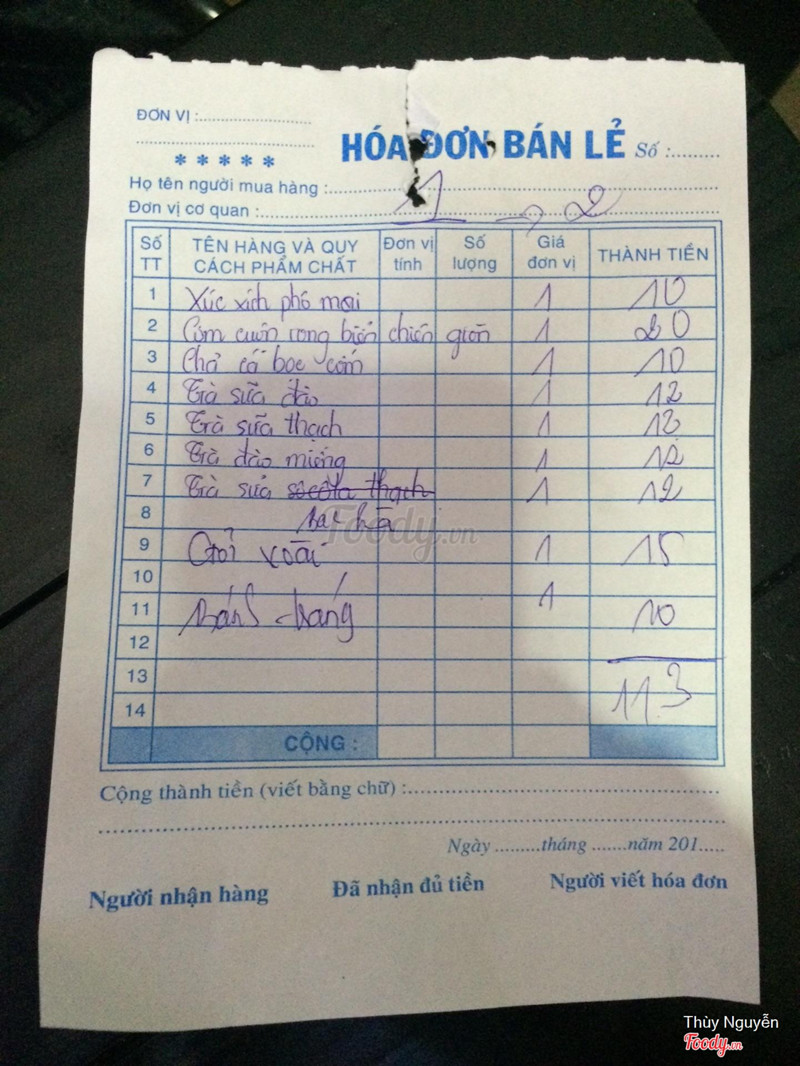 ĐƠN VỊ :
* * * * *
HÓA ĐƠN BÁN LẺ Số :
Họ tên người mua hàng :
Đơn vị cơ quan : 1 → 2
Số TT TÊN HÀNG VÀ QUY CÁCH PHẨM CHẤT Đơn vị tính Số lượng Giá đơn vị THÀNH TIỀN
1 Xúc xích phô mai 1 10
2 Cơm cuộn rong biển chiên giòn 1 20
3 Chả cá bọc cốm 1 10
4 Trà sữa đào 1 12
5 Trà sữa thạch 1 12
6 Trà đào miếng 1 12
7 Trà sữa socola thạch 1 12
8 bạc hà
9 Gỏi xoài 1 15
10 1
11 Bánh tráng 10
12
13 113
14
CỘNG :
Cộng thành tiền (viết bằng chữ) :
Ngày .........tháng .......năm 201.....
Người nhận hàng Đã nhận đủ tiền Người viết hóa đơn
Foody.vn
Thùy Nguyễn
Foody.vn